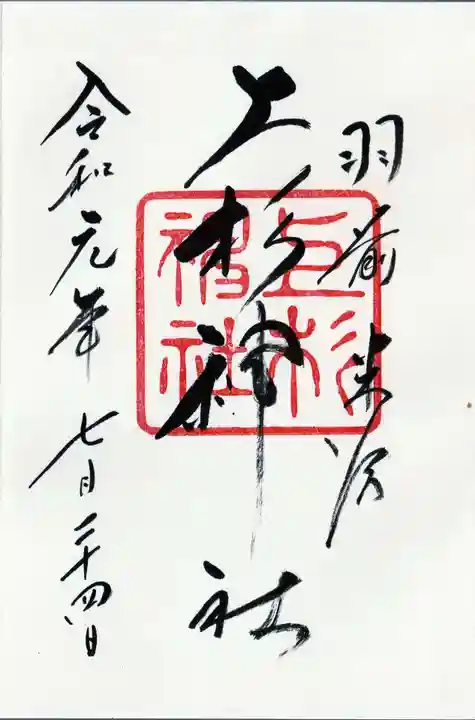 羽前 米沢
上杉神社
上杉
神社
令和元年 七月二十四日